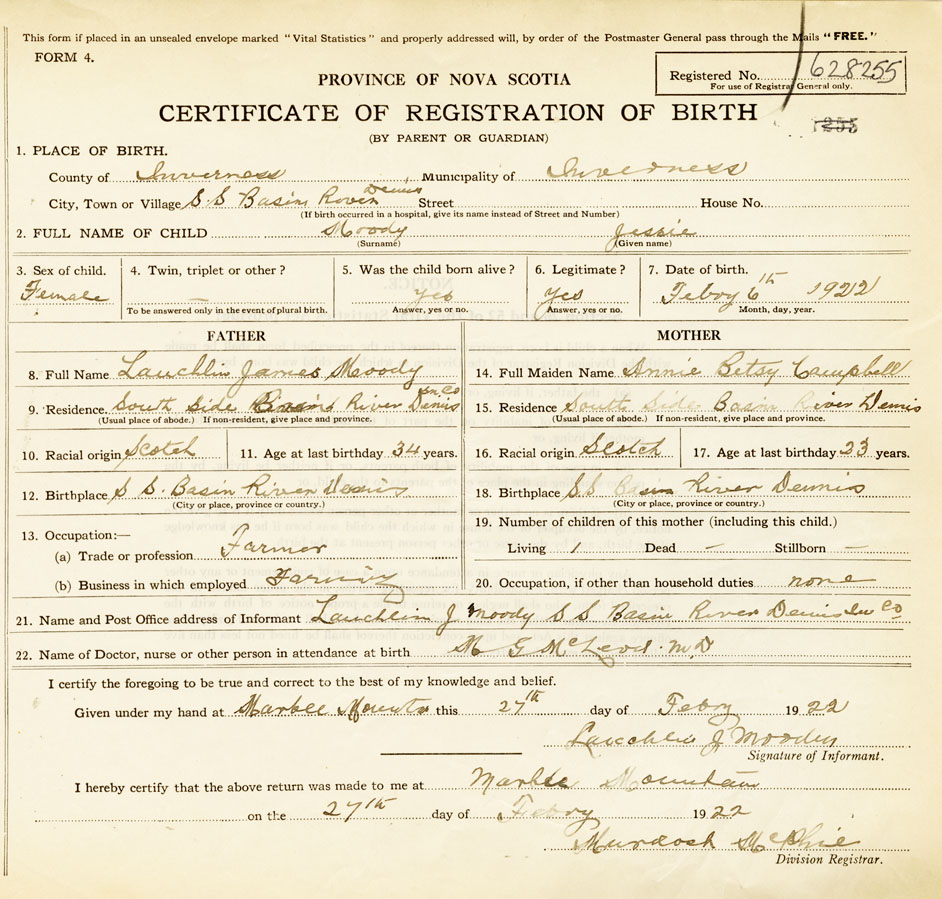 This form if placed in an unsealed envelope marked "Vital Statistics" and properly addressed will, by order of the Postmaster General pass through the Mails "FREE."
FORM 4.
Registered No. 628255
For use of Registrar General only.
PROVINCE OF NOVA SCOTIA
CERTIFICATE OF REGISTRATION OF BIRTH
255
(BY PARENT OR GUARDIAN)
1. PLACE OF BIRTH.
County of Inverness Municipality of Inverness
City, Town or Village S. S Basin River Dennis Street House No.
(If birth occurred in a hospital, give its name instead of Street and Number)
2. FULL NAME OF CHILD Moody Jessie
(Surname) (Given name)
3. Sex of child. 4. Twin, triplet or other? 5. Was the child born alive? 6. Legitimate? 7. Date of birth.
Female — Yes Yes Febry 6th 1922
To be answered only in the event of plural birth. Answer, yes or no. Answer, yes or no. Month, day, year.
FATHER MOTHER
8. Full Name Lauchlin James Moody 14. Full Maiden Name Annie Betsy Campbell
9. Residence. South Side Basin River Denis In Co 15. Residence South Side Basin River Dennis
(Usual place of abode.) If non-resident, give place and province. (Usual place of abode.) If non-resident, give place and province.
10. Racial origin Scotch 11. Age at last birthday 34 years. 16. Racial origin Scotch 17. Age at last birthday 23 years.
12. Birthplace S S. Basin River Dennis 18. Birthplace S S Basin River Dennis
(City or place, province or country.) (City or place, province or country.)
13. Occupation:— 19. Number of children of this mother (including this child.)
(a) Trade or profession Farmer Living 1 Dead — Stillborn —
(b) Business in which employed Farming 20. Occupation, if other than household duties none
21. Name and Post Office address of Informant Lauchlin J Moody S S Basin River Denis Inv Co
22. Name of Doctor, nurse or other person in attendance at birth M G McLeod. M.D
I certify the foregoing to be true and correct to the best of my knowledge and belief.
Given under my hand at Marble Mountn this 27th day of Febry 1922
Lauchlin J Moody
Signature of Informant.
I hereby certify that the above return was made to me at Marble Mountain
on the 27th day of Febry 1922
Murdoch McPhie
Division Registrar.